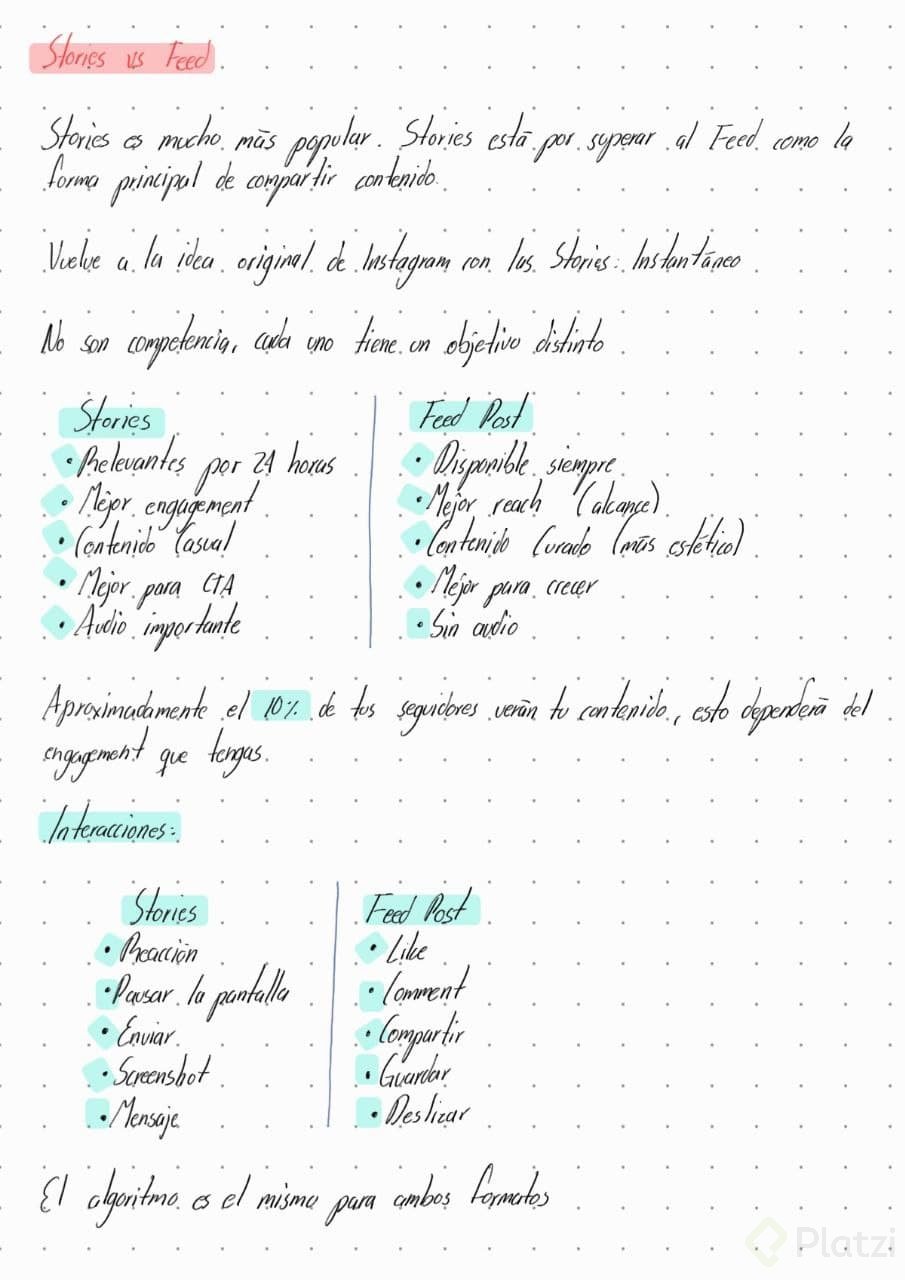 Stories vs Feed
Stories es mucho más popular. Stories está por superar al Feed como la
forma principal de compartir contenido.
Vuelve a la idea original de Instagram con las Stories: Instantáneo
No son competencia, cada uno tiene un objetivo distinto
Stories
• Relevantes por 24 horas
• Mejor engagement
• Contenido Casual
• Mejor para CTA
• Audio importante
Feed Post
• Disponible siempre
• Mejor reach (alcance)
• Contenido Curado (más estético)
• Mejor para crecer
• Sin audio
Aproximadamente el 10% de tus seguidores verán tu contenido, esto dependerá del
engagement que tengas.
Interacciones:
Stories
• Reacción
• Pausar la pantalla
• Enviar
• Screenshot
• Mensaje
Feed Post
• Like
• Comment
• Compartir
• Guardar
• Deslizar
El algoritmo es el mismo para ambos formatos
Platzi